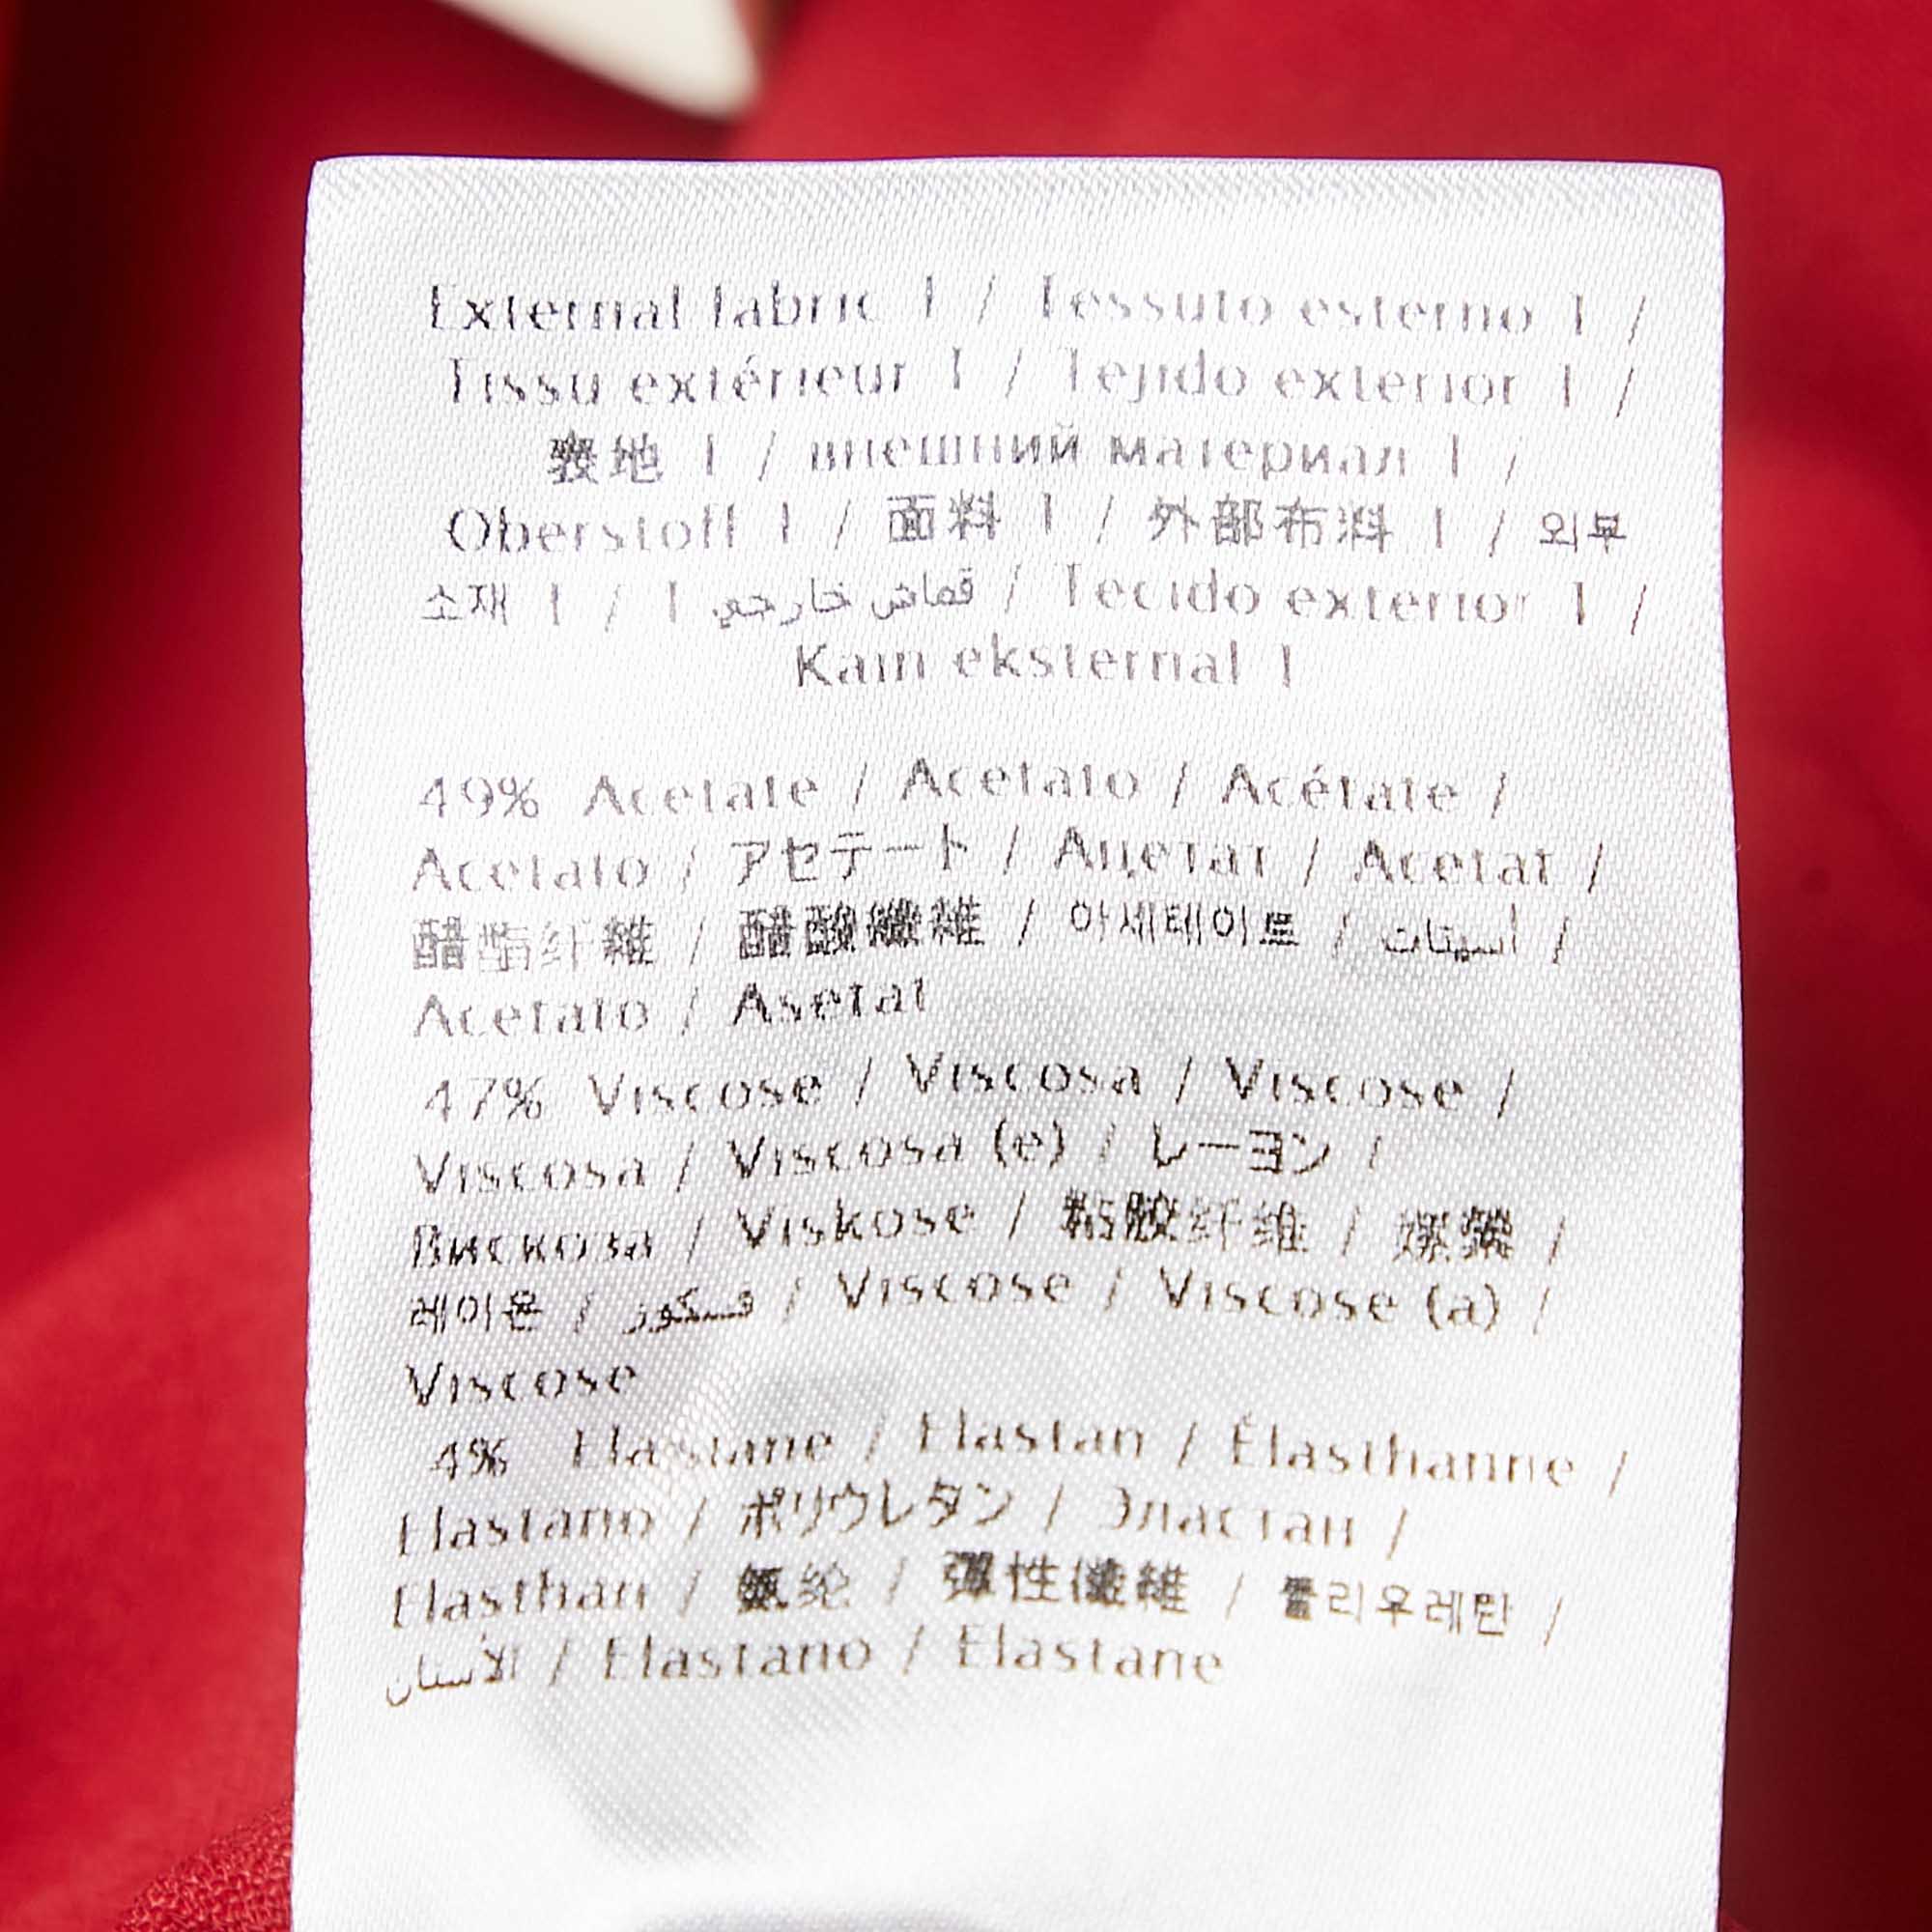 External fabric 1 / Tessuto esterno 1 /
Tissu extérieur 1 / Tejido exterior 1 /
表地 1 / внешний материал 1 /
Oberstoff 1 / 面料 1 / 外部布料 1 / 외부
소재 1 / قماش خارجي 1 / Tecido exterior 1 /
Kain eksternal 1
49% Acetate / Acetato / Acétate /
Acetato / アセテート / Ацетат / Acetat /
醋酯纤维 / 醋酸纖維 / 아세테이트 / أسيتات /
Acetato / Asetat
47% Viscose / Viscosa / Viscose /
Viscosa / Viscosa (e) / レーヨン /
Вискоза / Viskose / 粘胶纤维 / 嫘縈 /
레이온 / فسكوز / Viscose / Viscose (a) /
Viscose
4% Elastane / Elastan / Élasthanne /
Elastano / ポリウレタン / Эластан /
Elasthan / 氨纶 / 彈性纖維 / 폴리우레탄 /
الأستان / Elastano / Elastane